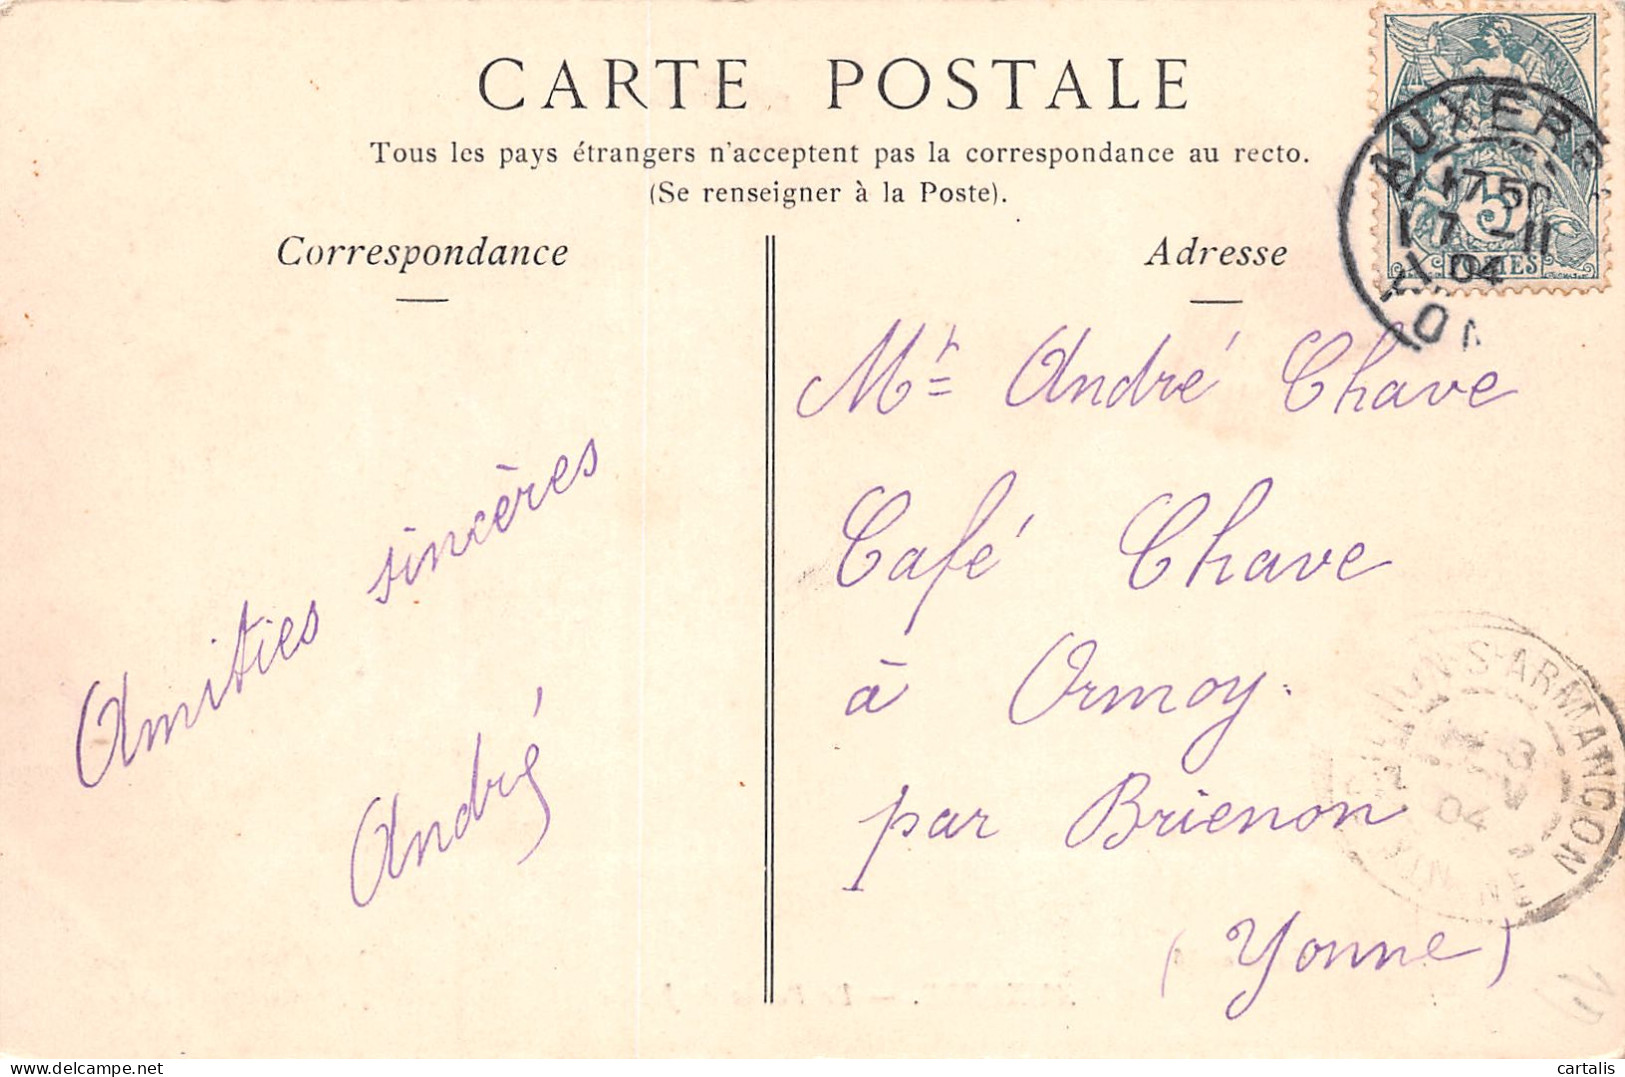 CARTE POSTALE
Tous les pays étrangers n'acceptent pas la correspondance au recto.
(Se renseigner à la Poste).
Correspondance
Adresse
17 50
7 - 11
04
5
POSTES
Mr André Chave
Café Chave
à Ormoy.
par Brienon
(Yonne)
Amities sincères
André
S-ARMANCON
04
cartalis
delcampe.net